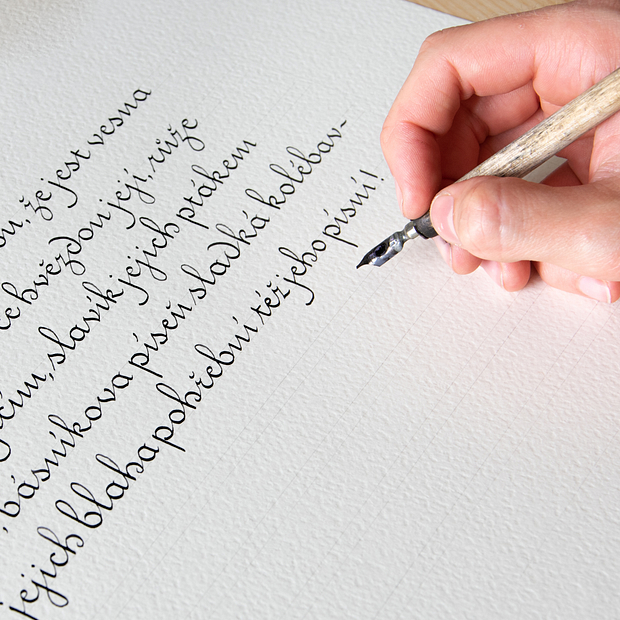 že jest vesna
hvězdou její, růže
slavík jejich ptákem
, básníkova píseň sladká kolébav-
jejich blaha pohřební též jeho písní!